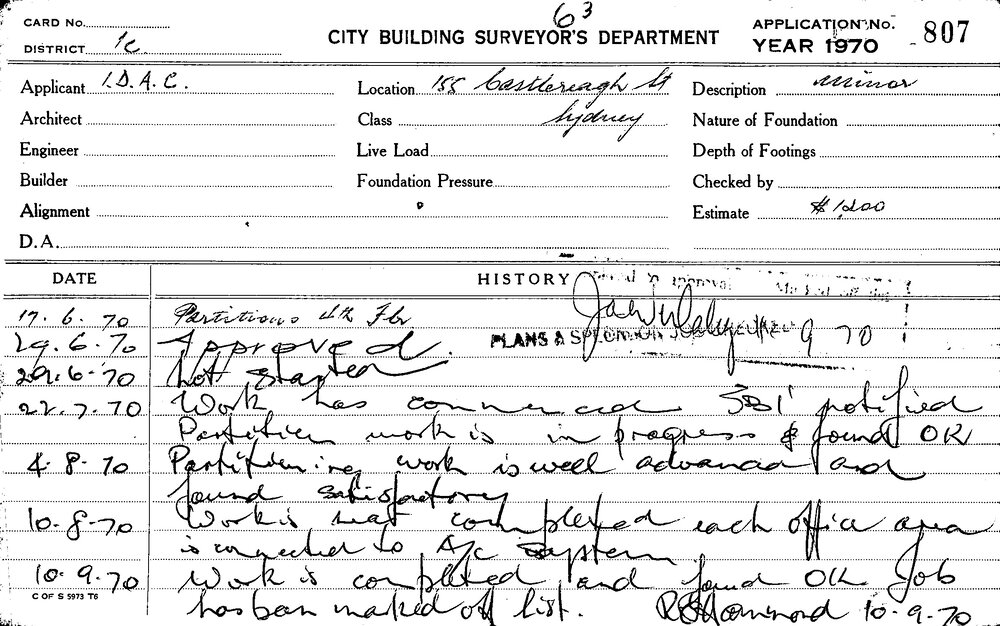 63
CARD No.
DISTRICT 1c
CITY BUILDING SURVEYOR'S DEPARTMENT
APPLICATION No. 807
YEAR 1970
Applicant I.D.A.C. Location 155 Castlereagh St Description Minor
Architect Class Sydney Nature of Foundation
Engineer Live Load Depth of Footings
Builder Foundation Pressure Checked by
Alignment Estimate $1,200
D.A.
DATE HISTORY
17.6.70 Partitions 4th Flr
PLANS & 9 70
29.6.70 Approved.
29.6.70 Not started
22.7.70 Work has commenced notified
Partition work is in progress & found OK
4.8.70 Partitioning work is well advanced and
found satisfactory
10-8-70 Work is near completed each office area
is connected to A/c System
10.9.70 Work is completed and found OK Job
has been marked off list. 10-9-70
C OF S 5973 T6